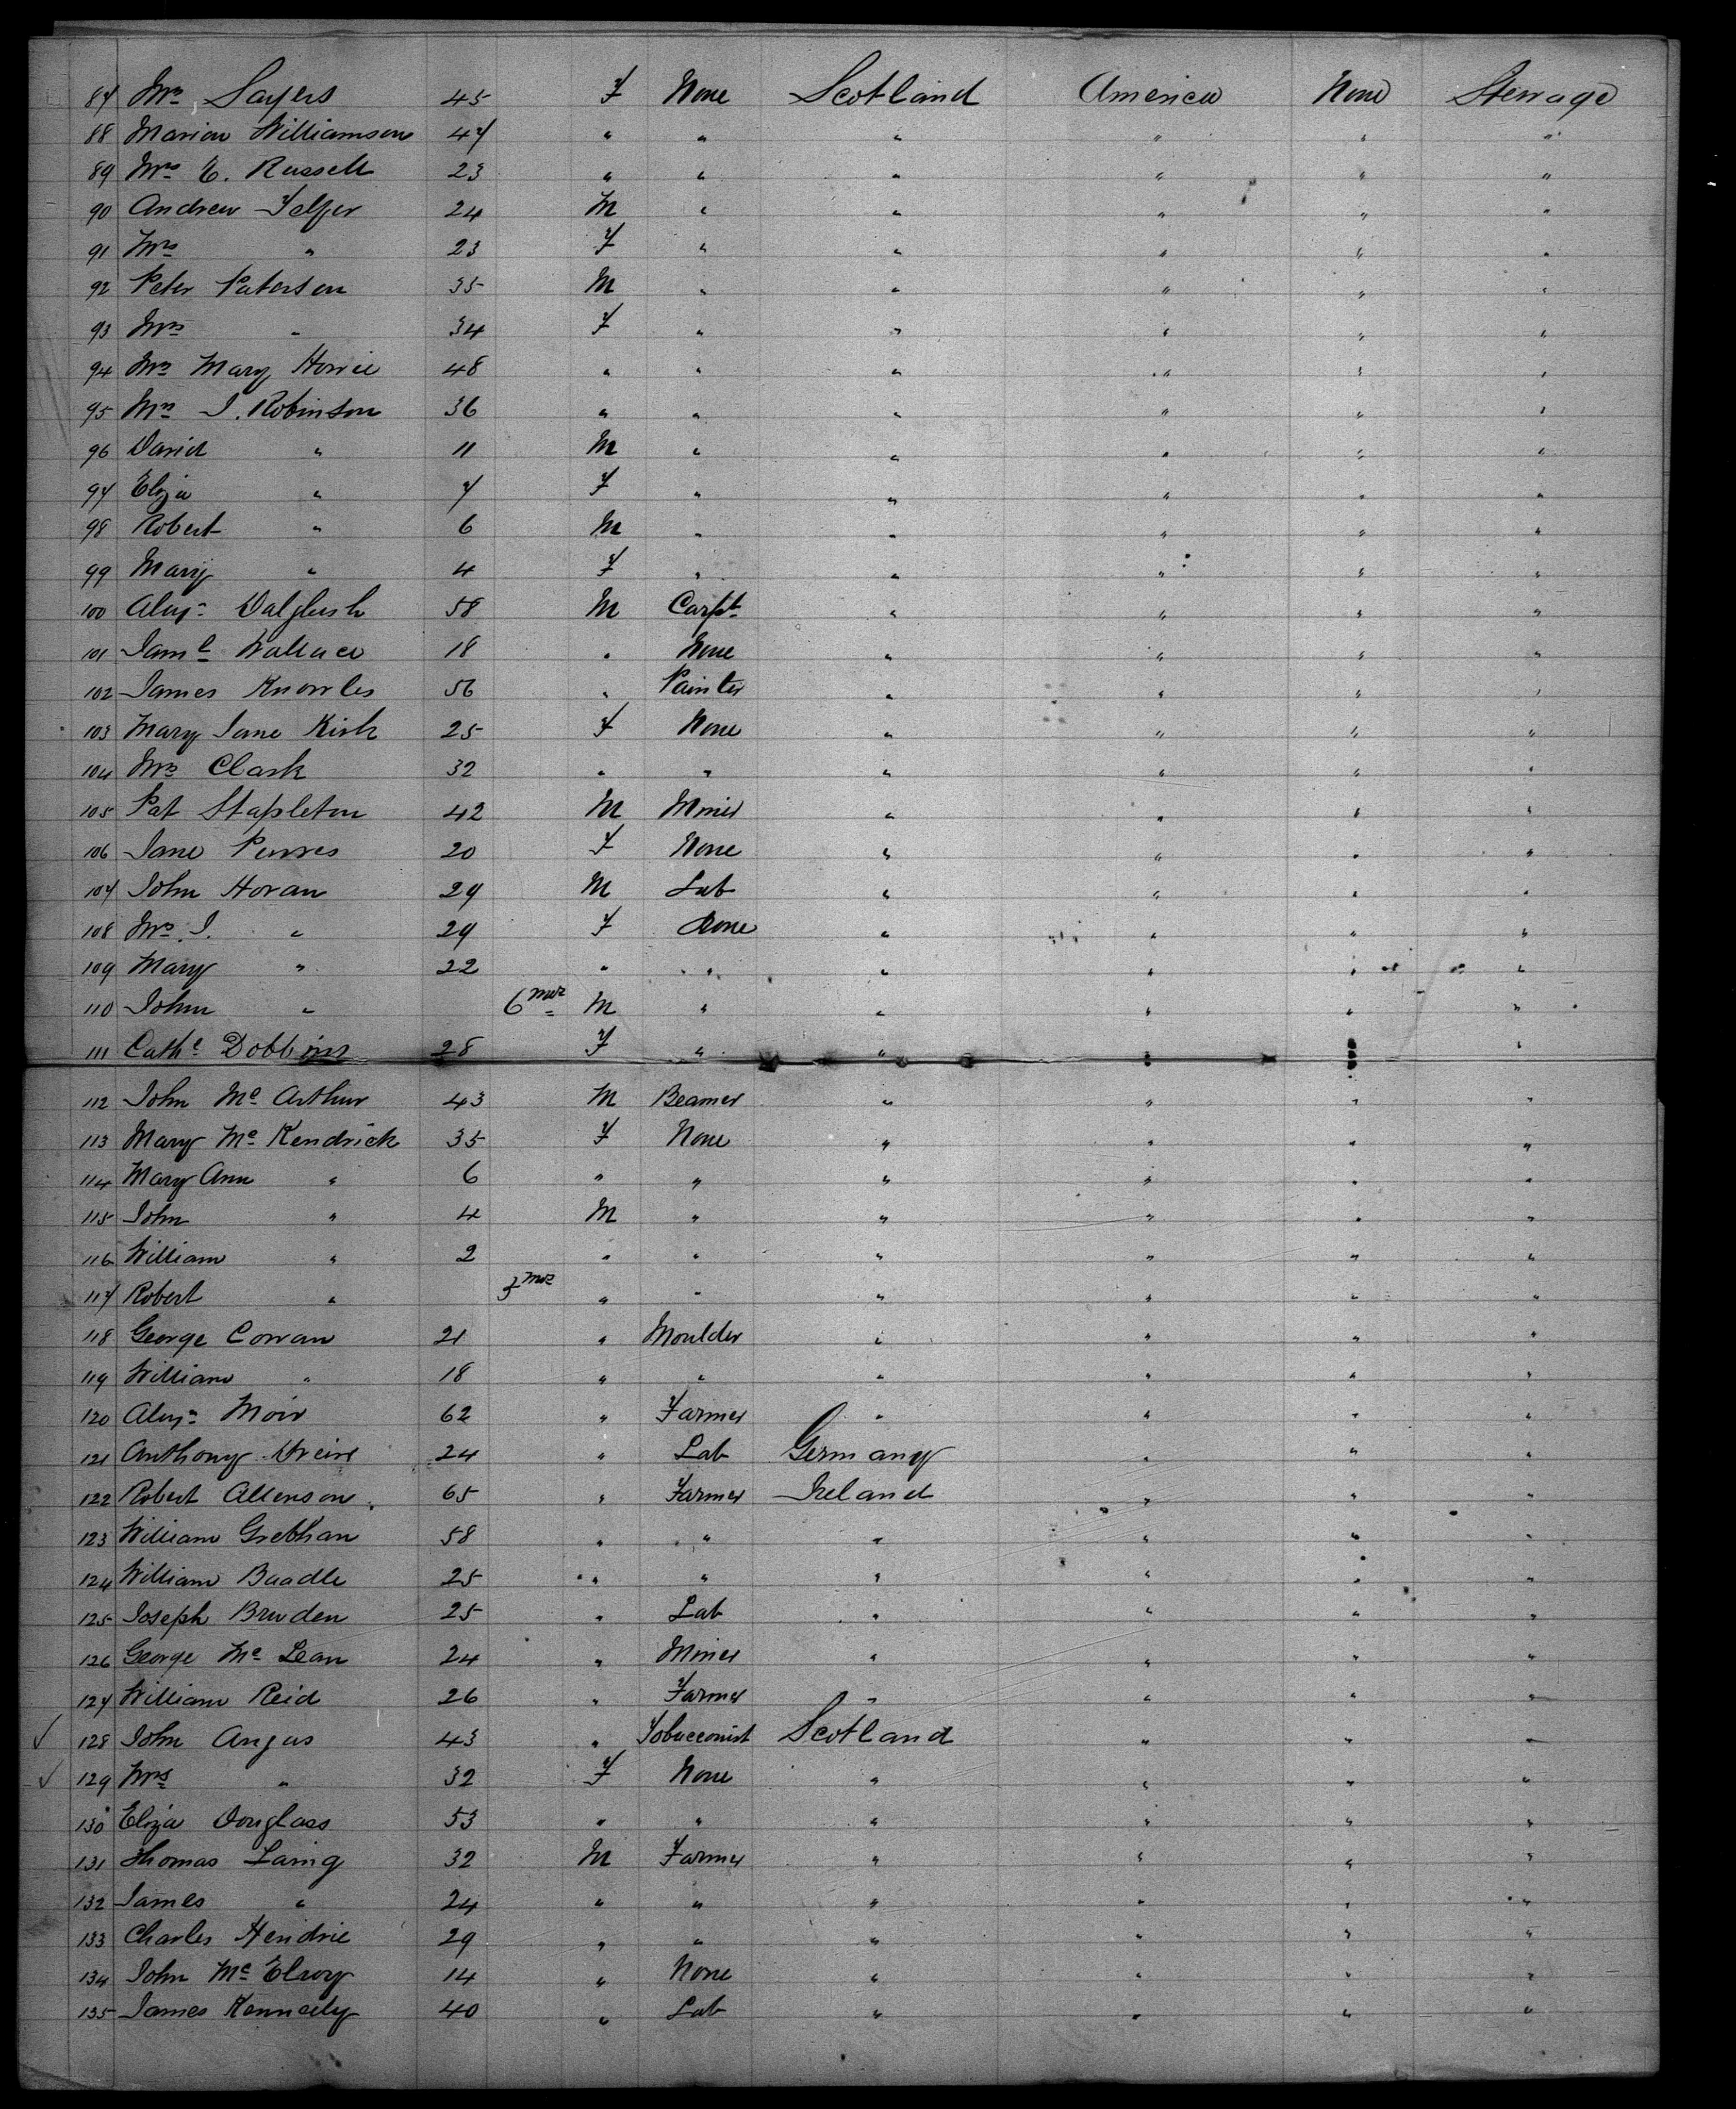 87 Mrs Sayers 45 F None Scotland America None Steerage
88 Marion Williamson 47 " " " " " "
89 Mrs C. Russell 23 " " " " " "
90 Andrew Telfer 24 M " " " " "
91 Mrs " 23 F " " " " "
92 Peter Paterson 35 M " " " " "
93 Mrs " 34 F " " " " "
94 Mrs Mary Howie 48 " " " " " "
95 Mrs J. Robinson 36 " " " " " "
96 David " 11 M " " " " "
97 Eliza " 7 F " " " " "
98 Robert " 6 M " " " " "
99 Mary " 4 F " " " " "
100 Alexr Dalgleish 58 M Carpt " " " "
101 Saml Wallace 18 " None " " " "
102 James Knowles 56 " Painter " " " "
103 Mary Jane Kirk 25 F None " " " "
104 Mrs Clark 32 " " " " " "
105 Pat Stapleton 42 M Miner " " " "
106 Jane Purves 20 F None " " " "
107 John Horan 29 M Lab " " " "
108 Mrs J. " 29 F None " " " "
109 Mary " 22 " " " " " "
110 John " 6 mos M " " " " "
111 Cathe Dobbins 28 F " " " " "
112 John Mc Arthur 43 M Beamer " " " "
113 Mary Mc Kendrick 35 F None " " " "
114 Mary Ann " 6 " " " " " "
115 John " 4 M " " " " "
116 William " 2 " " " " " "
117 Robert " 3 mos " " " " " "
118 George Cowan 21 " Moulder " " " "
119 William " 18 " " " " " "
120 Alexr Moir 62 " Farmer " " " "
121 Anthony 24 " Lab Germany " " "
122 Robert Allenson 65 " Farmer Ireland " " "
123 William Grebhan 58 " " " " " "
124 William Baadle 25 " " " " " "
125 Joseph Bruden 25 " Lab " " " "
126 George Mc Lean 24 " Miner " " " "
127 William Reid 26 " Farmer " " " "
128 John Angus 43 " Tobacconist Scotland " " "
129 Mrs " 32 F None " " " "
130 Eliza Douglass 53 " " " " " "
131 Thomas Laing 32 M Farmer " " " "
132 James " 24 " " " " " "
133 Charles Hendrie 29 " " " " " "
134 John Mc Elroy 14 " None " " " "
135 James Kennedy 40 " Lab " " " "